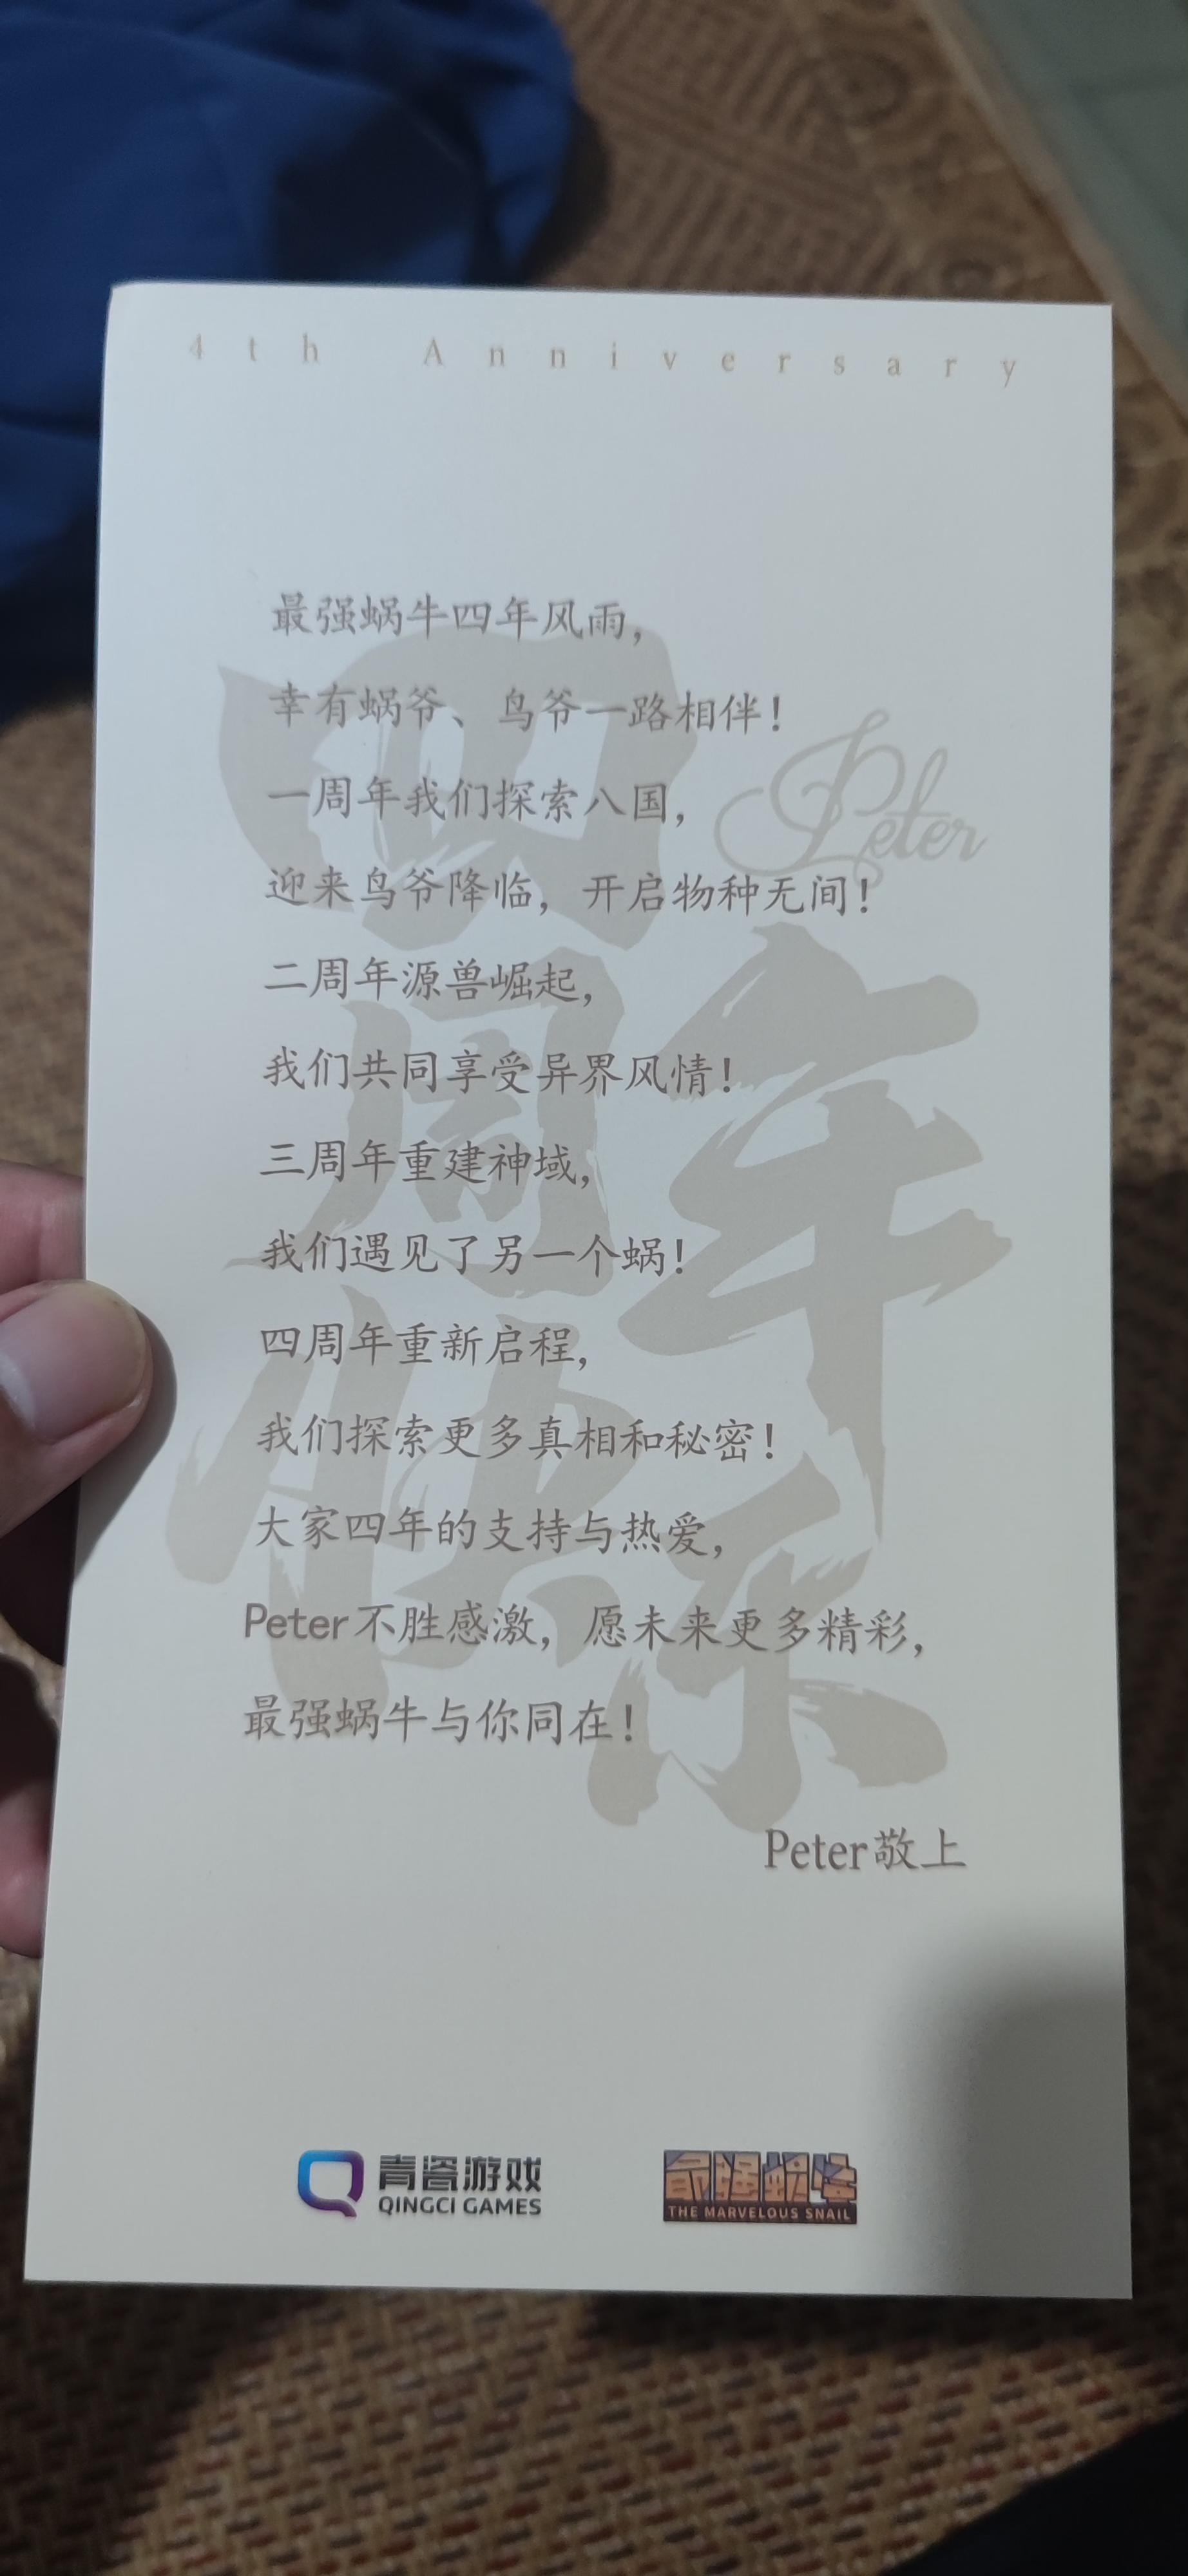 4th Anniversary
最强蜗牛四年风雨，
幸有蜗爷、鸟爷一路相伴！
一周年我们探索八国，
迎来鸟爷降临，开启物种无间！
二周年源兽崛起，
我们共同享受异界风情！
三周年重建神域，
我们遇见了另一个蜗！
四周年重新启程，
我们探索更多真相和秘密！
大家四年的支持与热爱，
Peter不胜感激，愿未来更多精彩，
最强蜗牛与你同在！
Peter敬上
四周年快乐
Peter
青瓷游戏
QINGCI GAMES
最强蜗牛
THE MARVELOUS SNAIL